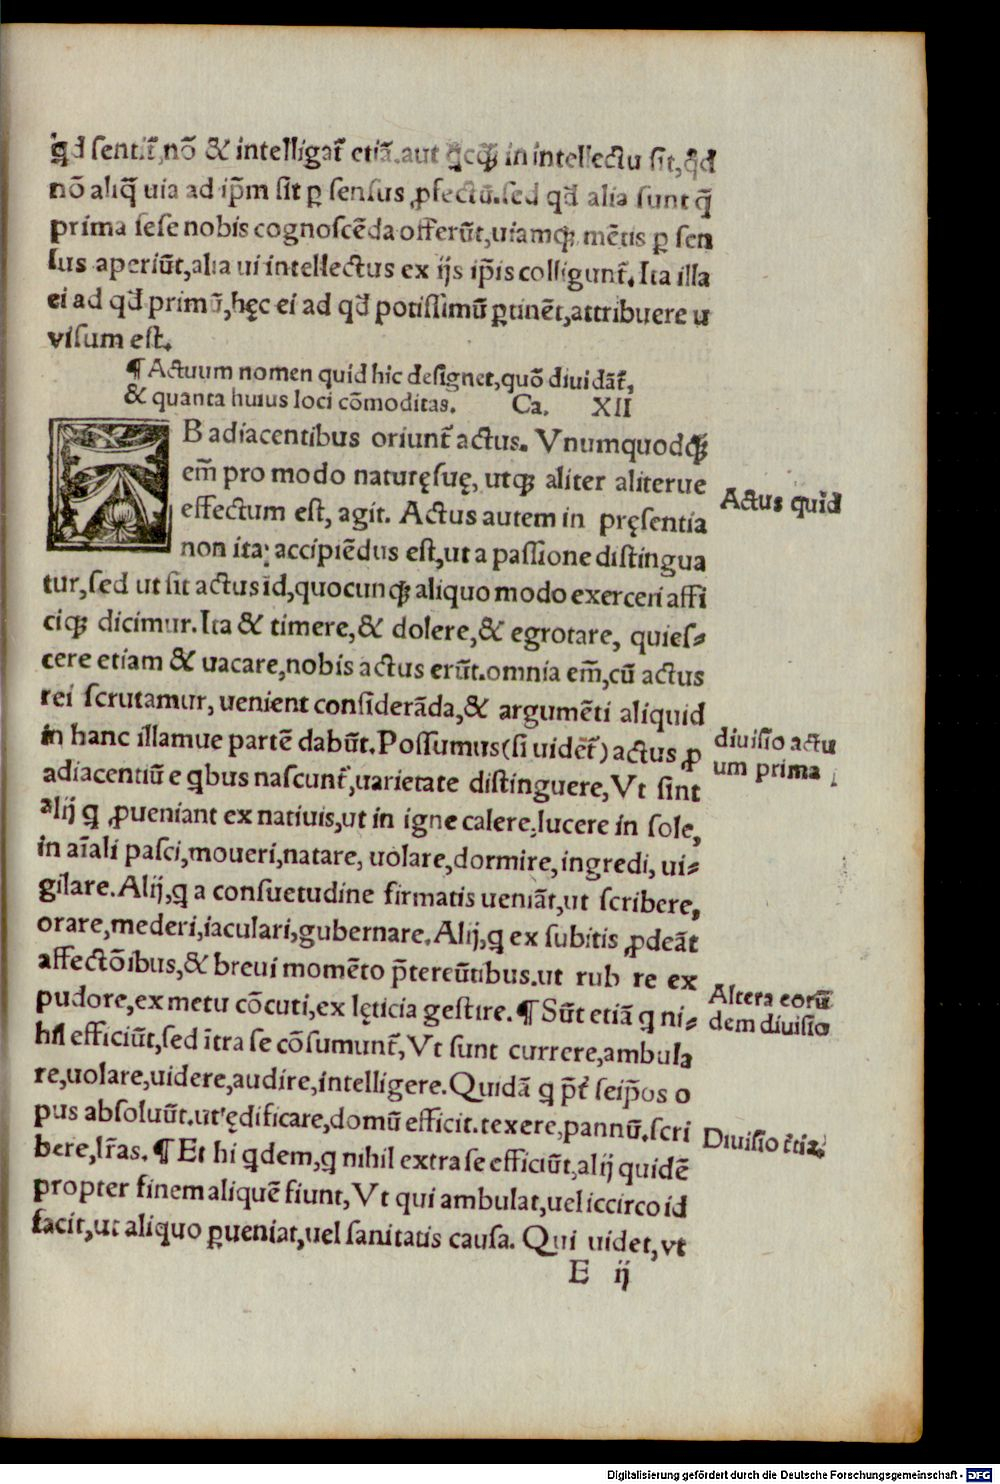 qd̄ sentit̃, nō & intelligat̃ etiā. aut q̄cq̃ꝫ in intellectu sit, qd̄
nō aliq̄ uia ad ip̄m sit ꝑ sensus ꝓfectū. sed qd̄ alia sunt q̄
prima sese nobis cognoscēda offerūt, uiamqꝫ mētis ꝑ sen
sus aperiūt, alia ui intellectus ex ijs ip̄is colligunt̃. Ita illa
ei ad qd̄ primū, hęc ei ad qd̄ potissimū ꝑtinēt, attribuere u
visum est.
¶ Actuum nomen quid hic designet, quō diuidāt̃,
& quanta huius loci cōmoditas. Ca. XII
AB adiacentibus oriunt̃ actus. Vnumquodqꝫ
em̄ pro modo naturęsuę, utqꝫ aliter aliterue
effectum est, agit. Actus autem in pręsentia
non ita accipiēdus est, ut a passione distingua
tur, sed ut sit actus id, quocunqꝫ aliquo modo exerceri affi
ciqꝫ dicimur. Ita & timere, & dolere, & egrotare, quies⸗
cere etiam & uacare, nobis actus erūt. omnia em̄, cū actus
rei scrutamur, uenient consideRāda, & argumēti aliquid
in hanc illamue partē dabūt. Possumus (si uidet̃) actus ꝓ
adiacentiū e qbus nascunt̃, uarietate distinguere, Vt sint
alij q ꝓueniant ex natiuis, ut in igne calere, lucere in sole,
in aīali pasci, moueri, natare, uolare, dormire, ingredi, ui⸗
gilare. Alij, q a consuetudine firmatis ueniāt, ut scribere,
orare, mederi, iaculari, gubernare. Alij, q ex subitis ꝓdeāt
affectōibus, & breui momēto p̄tereūtibus. ut rub re ex
pudore, ex metu cōcuti, ex lęticia gestire. ¶ Sūt etiā q ni⸗
hil efficiūt, sed ītra se cōsumunt̃, Vt sunt currere, ambula
re, uolare, uidere, audire, intelligere. Quidā q p̄t̃ seip̄os o
pus absoluūt. ut ędificare, domū efficit. texere, pannū. scri
bere, lr̄as. ¶ Et hi qdem, q nihil extra se efficiūt, alij quidē
propter finem aliquē fiunt, Vt qui ambulat, uel iccirco id
facit, ut aliquo ꝑueniat, uel sanitatis causa. Qui uidet, vt
E ij
Actus quid
diuisio actu
um prima
Altera eorū
dem diuisio
Diuisio t̃tia.
Digitalisierung gefördert durch die Deutsche Forschungsgemeinschaft - DFG